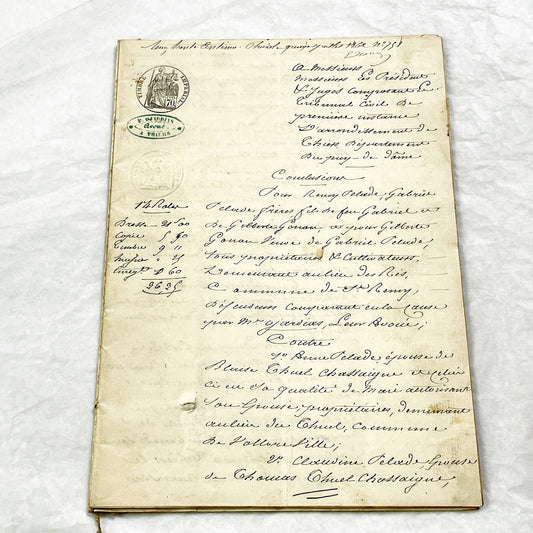 trente Centimes
1862 N° 758
TIMBRE IMPÉRIAL
70
Avoué
A THIERS
A Messieurs
Messieurs les Président
& Juges composant le
Tribunal Civil de
première instance
D'arrondissement de
Thiers Département
Du puy-de dôme
Conclusions
Pour Remy Pelade, Gabriel
Pelade frères fils de feu Gabriel et
De Gilberte Gonan, et pour Gilberte
Gonan Veuve de Gabriel Pelade,
tous propriétaires & Cultivateurs,
Demeurant au lieu des Ris,
Commune de St Remy,
Défendeurs comparant en la Cause
par Me Ojardias, Leur Avoué;
Contre
1° Anne Pelade épouse de
Blaise Thuel Chassaigne et celui
ci en sa qualité de Mari autorisant
son épouse, propriétaires, demeurant
au lieu du Thuel, commune
De Vollore Ville;
2° Claudine Pelade épouse
de Thomas Thuel Chassaigne,
14 Roles
Dresse 21 00
Copie 5
Timbre 9 11
60
36 35